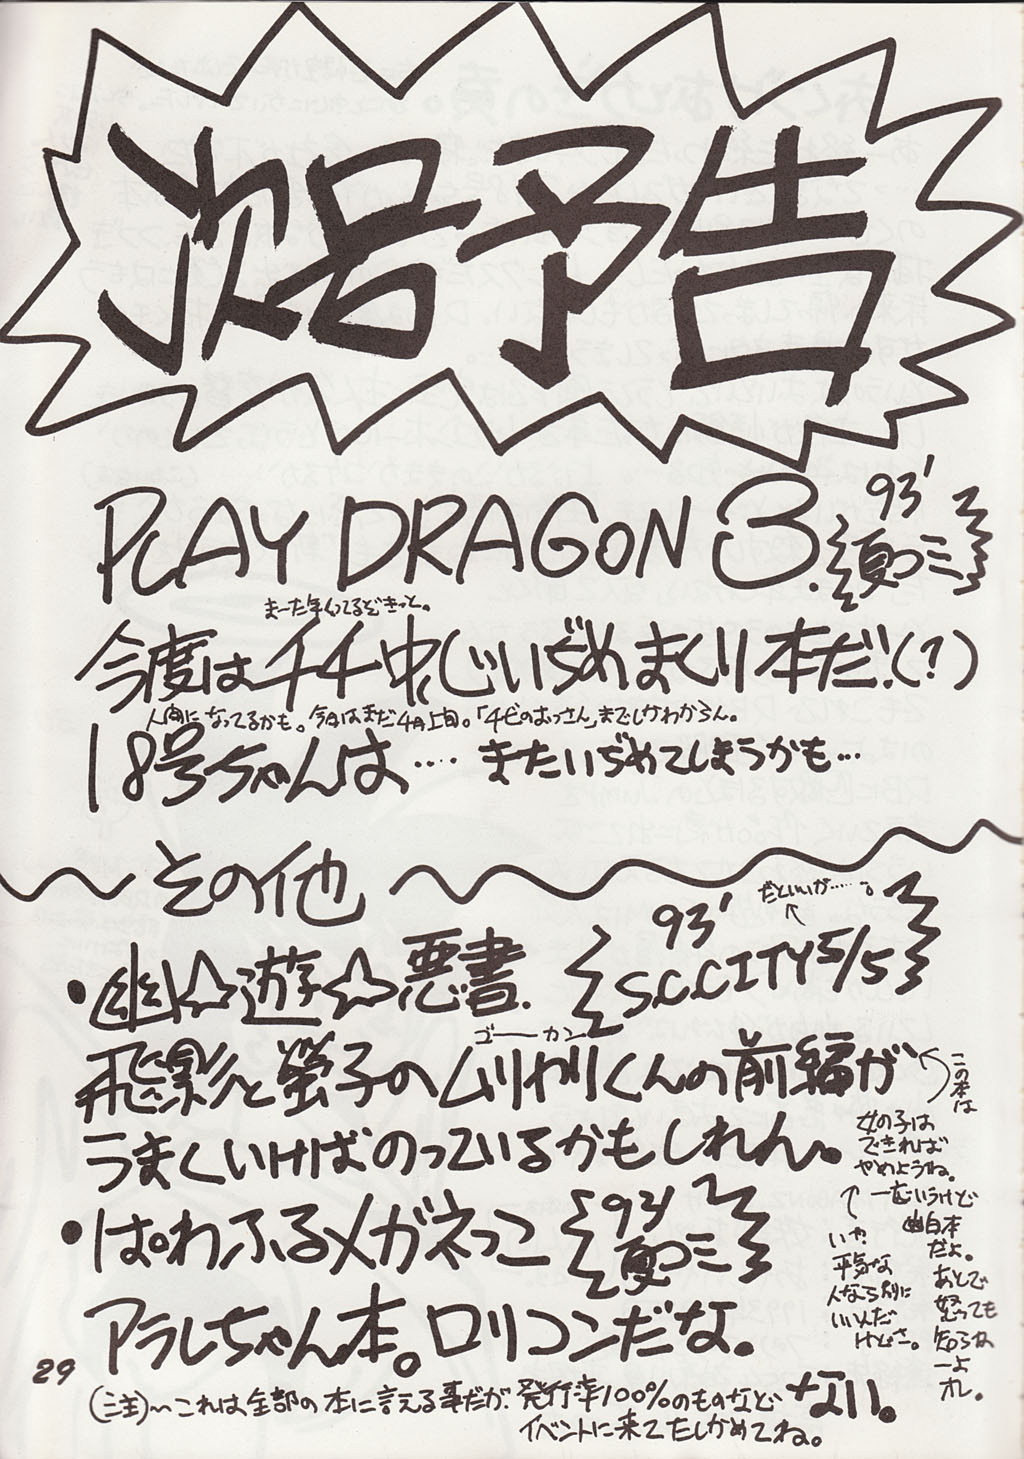 次号予告
PLAY DRAGON 3.
93'
夏コミ
まーた年くってるぞきっと。
今度はチチ中心いぢめまくり本だ!(?)
人間になってるかも。今日はまだ4月上旬。「4代のおっさん」までしかわからん。
18号ちゃんは…. またいぢめてしまうかも…
その他
だといいが……。
・幽☆遊☆悪書.
93'
S.C.CITY5/5
ゴーカン
飛影と螢子のムリヤリくんの前編が
うまくいけばのっているかもしれん。
この本は
女の子は
できれば
やめようね。
一応いうけど
幽白本
だよ。
あとで
怒っても
知らね
ーよ
オレ。
いや
平気な
人なら別に
いいんだ
けどさ。
・ぱわふるメガネっこ
93'
夏コミ
アラレちゃん本。ロリコンだな。
29
(注)〜これは全部の本に言える事だが、発行率100%のものなど ない。
イベントに来てたしかめてね。